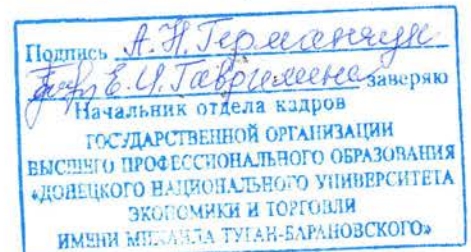 Подпись А.Н. Германчук
Е.И. Гаврилина заверяю
Начальник отдела кадров
ГОСУДАРСТВЕННОЙ ОРГАНИЗАЦИИ
ВЫСШЕГО ПРОФЕССИОНАЛЬНОГО ОБРАЗОВАНИЯ
«ДОНЕЦКОГО НАЦИОНАЛЬНОГО УНИВЕРСИТЕТА
ЭКОНОМИКИ И ТОРГОВЛИ
ИМЕНИ МИХАИЛА ТУГАН-БАРАНОВСКОГО»